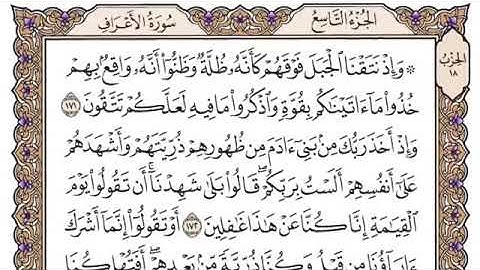 الجُزْءُ التَّاسِعُ
سُورَةُ الأَعْرَافِ
الحِزْبُ
١٨
۞ وَإِذْ نَتَقْنَا ٱلْجَبَلَ فَوْقَهُمْ كَأَنَّهُۥ ظُلَّةٌ وَظَنُّوٓا۟ أَنَّهُۥ وَاقِعٌۢ بِهِمْ
خُذُوا۟ مَآ ءَاتَيْنَٰكُم بِقُوَّةٍ وَٱذْكُرُوا۟ مَا فِيهِ لَعَلَّكُمْ تَتَّقُونَ ١٧١
وَإِذْ أَخَذَ رَبُّكَ مِنۢ بَنِىٓ ءَادَمَ مِن ظُهُورِهِمْ ذُرِّيَّتَهُمْ وَأَشْهَدَهُمْ
عَلَىٰٓ أَنفُسِهِمْ أَلَسْتُ بِرَبِّكُمْ ۖ قَالُوا۟ بَلَىٰ ۛ شَهِدْنَآ ۛ أَن تَقُولُوا۟ يَوْمَ
ٱلْقِيَٰمَةِ إِنَّا كُنَّا عَنْ هَٰذَا غَٰفِلِينَ ١٧٢ أَوْ تَقُولُوٓا۟ إِنَّمَآ أَشْرَكَ
ءَابَآؤُنَا مِن قَبْلُ وَكُنَّا ذُرِّيَّةً مِّنۢ بَعْدِهِمْ ۖ أَفَتُهْلِكُنَا